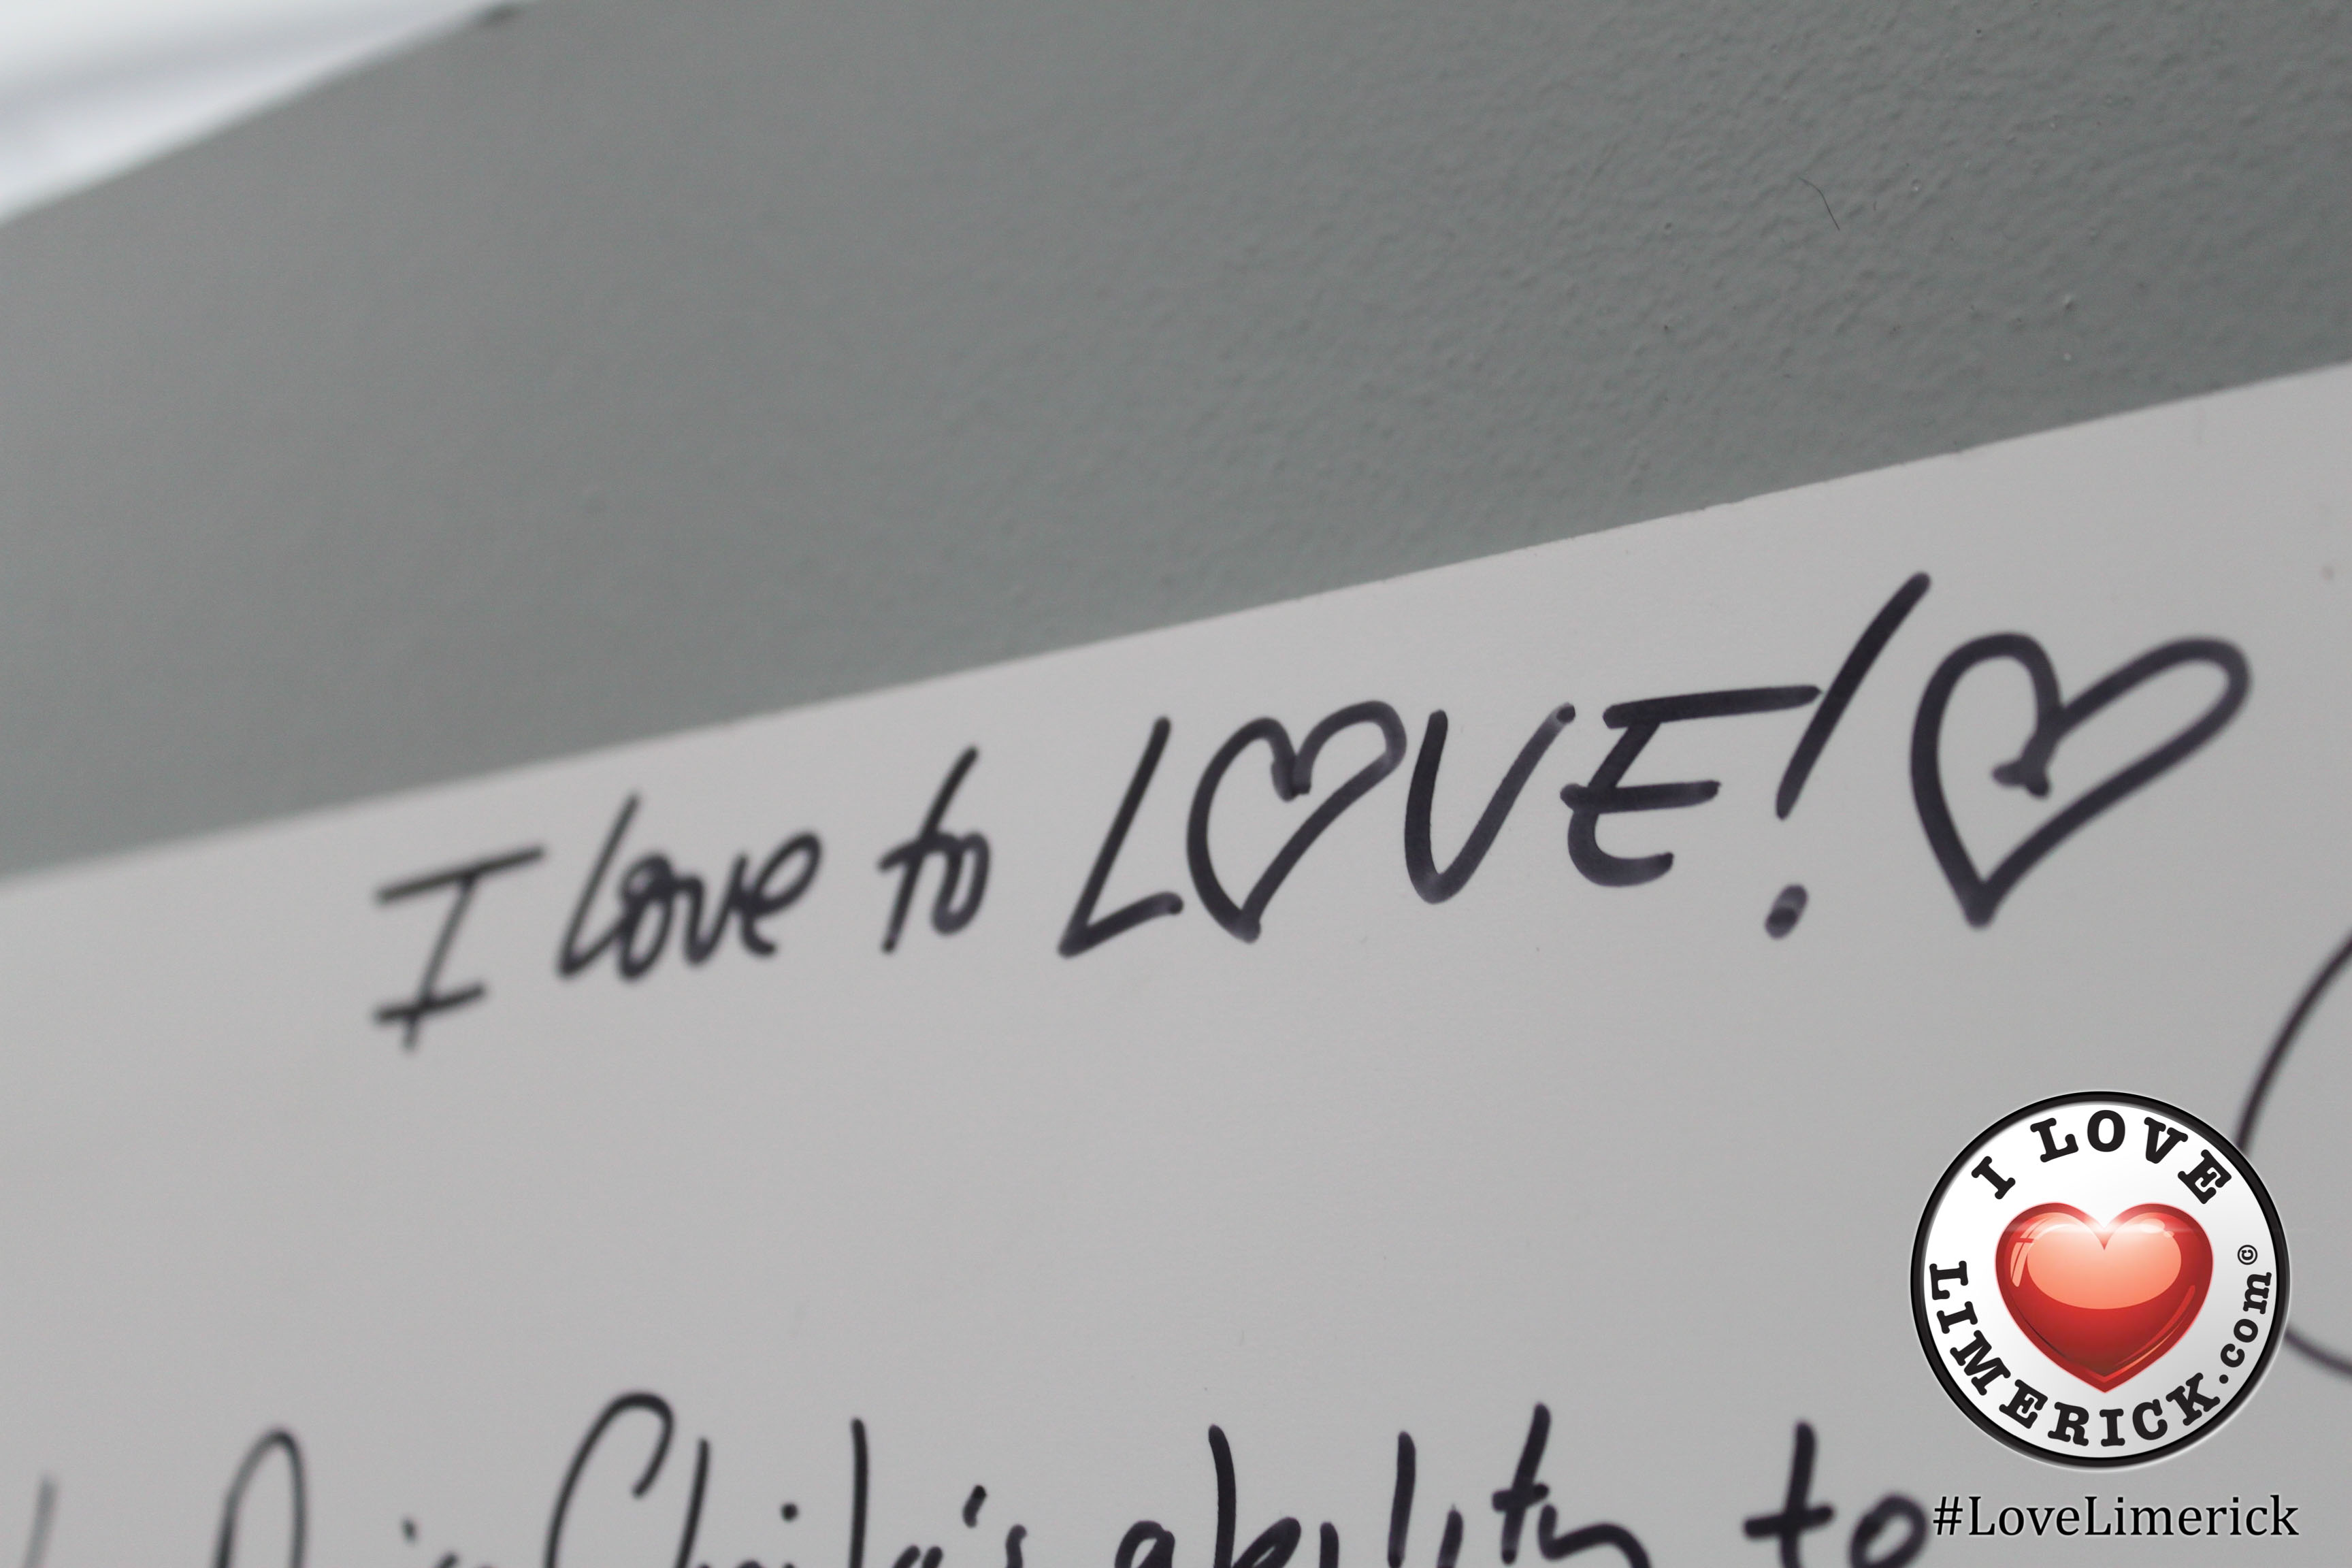 I love to LOVE!
ability to
I LOVE
LIMERICK.com©
#LoveLimerick